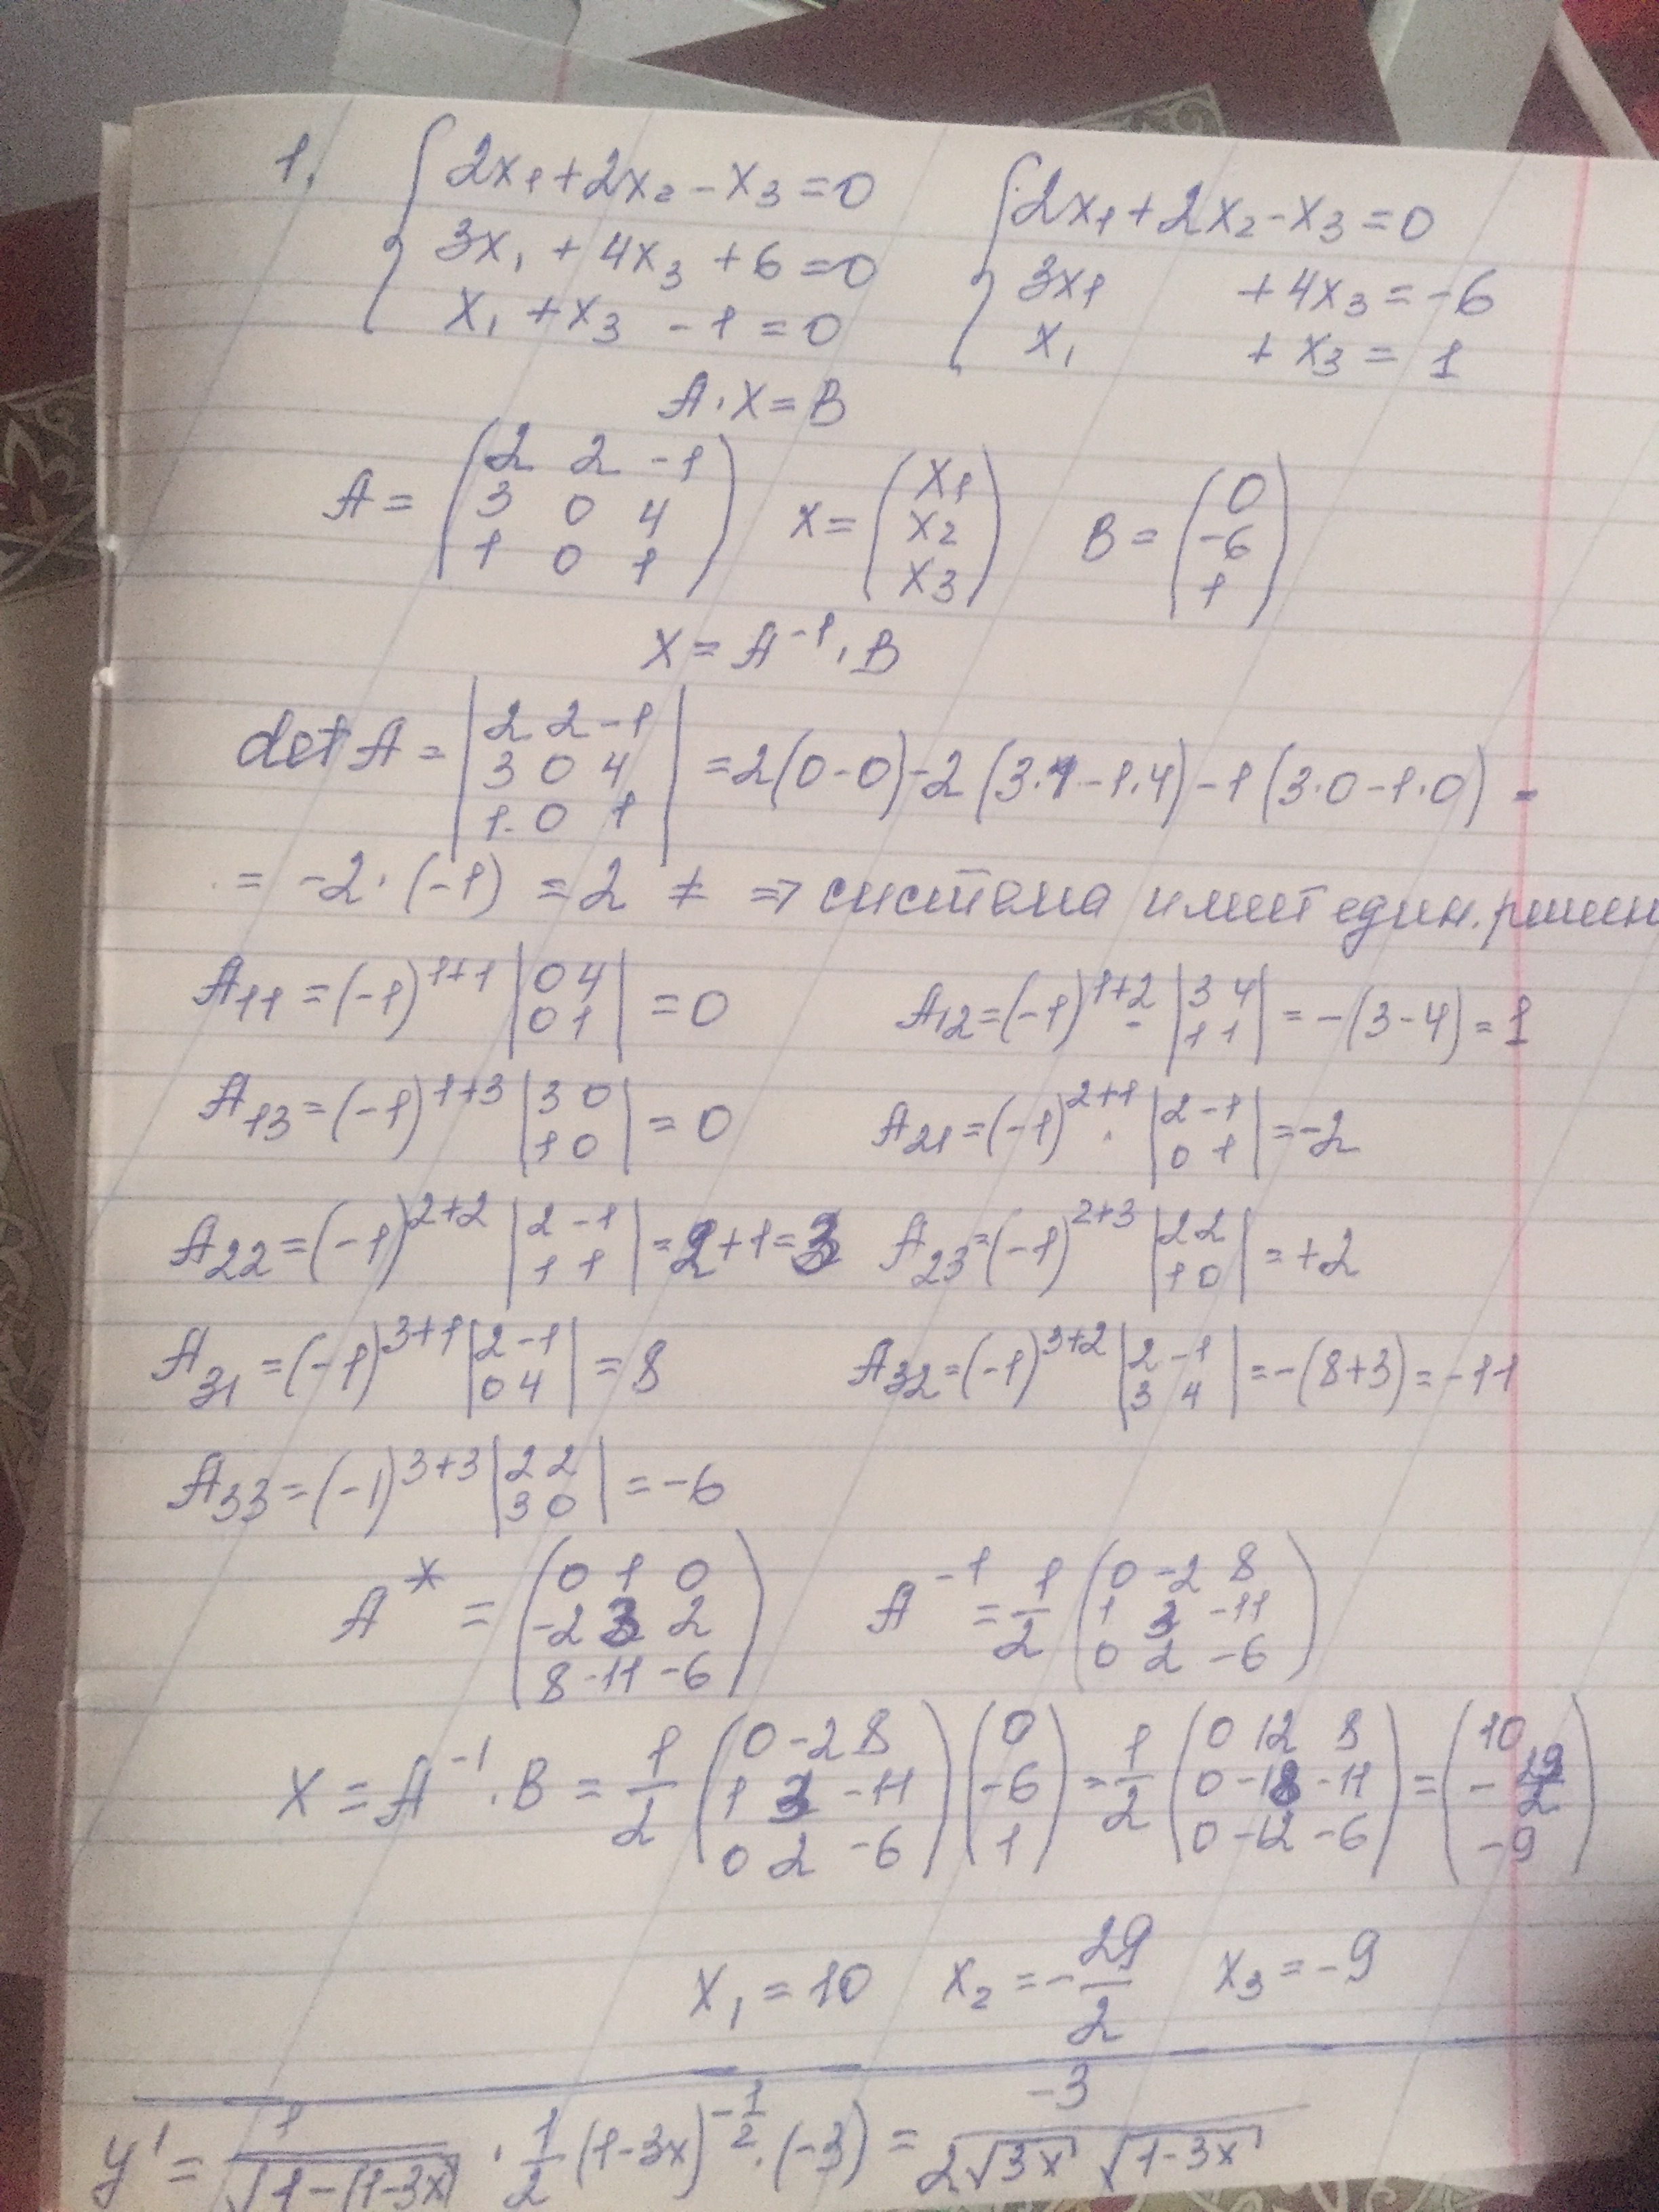 1. { 2x₁ + 2x₂ - x₃ = 0   { 2x₁ + 2x₂ - x₃ = 0
3x₁ + 4x₃ + 6 = 0   3x₁ + 4x₃ = -6
x₁ + x₃ - 1 = 0   x₁ + x₃ = 1
A · X = B
A = (2 2 -1; 3 0 4; 1 0 1)   X = (x₁; x₂; x₃)   B = (0; -6; 1)
X = A⁻¹ · B
det A = |2 2 -1; 3 0 4; 1 0 1| = 2(0-0) - 2(3·1 - 1·4) - 1(3·0 - 1·0) =
= -2 · (-1) = 2 ≠ ⇒ система имеет един. решен
A₁₁ = (-1)¹⁺¹ |0 4; 0 1| = 0   A₁₂ = (-1)¹⁺² · |3 4; 1 1| = -(3-4) = 1
A₁₃ = (-1)¹⁺³ |3 0; 1 0| = 0   A₂₁ = (-1)²⁺¹ · |2 -1; 0 1| = -2
A₂₂ = (-1)²⁺² |2 -1; 1 1| = 2+1 = 3   A₂₃ = (-1)²⁺³ |2 2; 1 0| = +2
A₃₁ = (-1)³⁺¹ |2 -1; 0 4| = 8   A₃₂ = (-1)³⁺² |2 -1; 3 4| = -(8+3) = -11
A₃₃ = (-1)³⁺³ |2 2; 3 0| = -6
A* = (0 1 0; -2 3 2; 8 -11 -6)   A⁻¹ = 1/2 (0 -2 8; 1 3 -11; 0 2 -6)
X = A⁻¹ · B = 1/2 (0 -2 8; 1 3 -11; 0 2 -6) (0; -6; 1) = 1/2 (0 12 8; 0 -18 -11; 0 -12 -6) = (10; -29/2; -9)
x₁ = 10   x₂ = -29/2   x₃ = -9
y' = 1/√(1-(1-3x)) · 1/2 (1-3x)^(-1/2) · (-3) = -3/(2√(3x) √(1-3x))